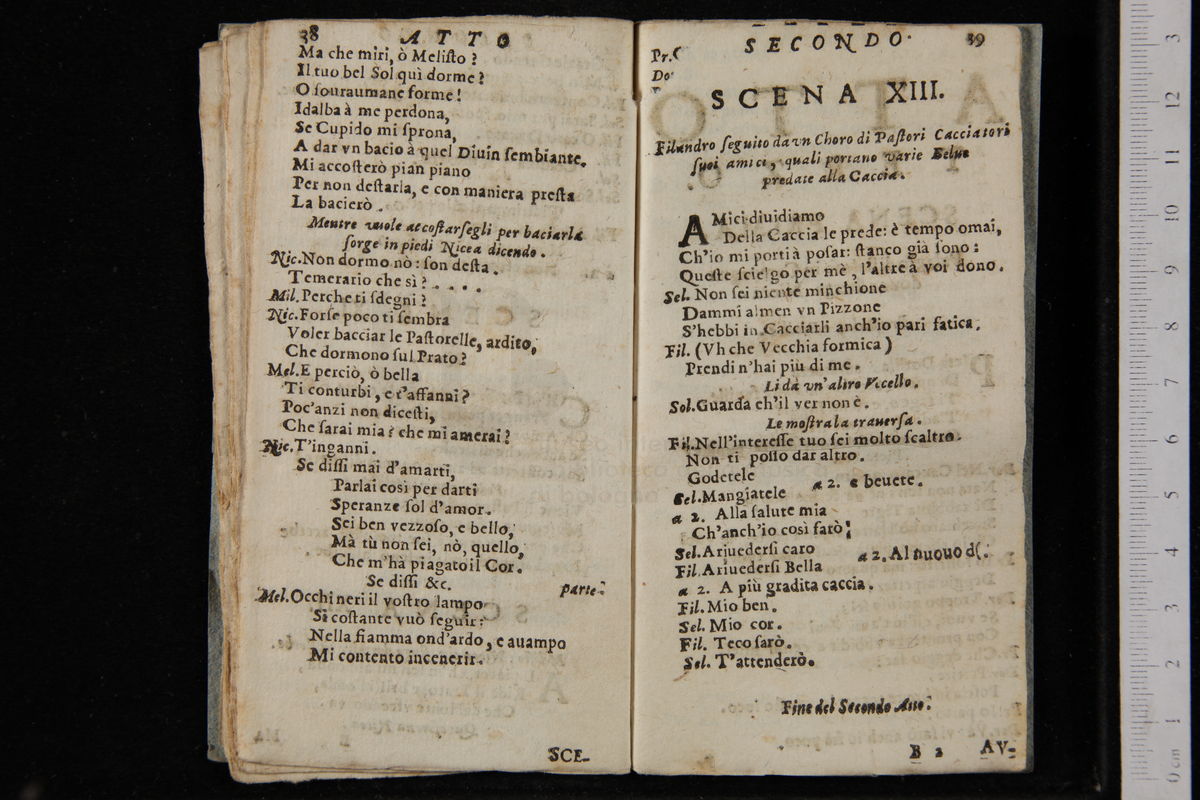 38 ATTO
Ma che miri, ò Melisto?
Il tuo bel Sol quì dorme?
O souraumane forme!
Idalba à me perdona,
Se Cupido mi sprona,
A dar vn bacio à quel Diuin sembiante.
Mi accosterò pian piano
Per non destarla, e con maniera presta
La bacierò.
Mentre vuole accostarsegli per baciarla
sorge in piedi Nicea dicendo.
Nic. Non dormo nò: son desta.
Temerario che sì? . . . .
Mil. Perche ti sdegni?
Nic. Forse poco ti sembra
Voler bacciar le Pastorelle, ardito,
Che dormono sul Prato?
Mel. E perciò, ò bella
Ti conturbi, e t'affanni?
Poc'anzi non dicesti,
Che sarai mia? che mi amerai?
Nic. T'inganni.
Se dissi mai d'amarti,
Parlai così per darti
Speranze sol d'amor.
Sei ben vezzoso, e bello,
Mà tù non sei, nò, quello,
Che m'hà piagato il Cor.
Se dissi &c. parte.
Mel. Occhi neri il vostro lampo
Sì costante vuò seguir:
Nella fiamma ond'ardo, e auampo
Mi contento incenerir.
SCE-
SECONDO. 39
SCENA XIII.
Filandro seguito da vn Choro di Pastori Cacciatori
suoi amici, quali portano varie Belue
predate alla Caccia.
AMici diuidiamo
Della Caccia le prede: è tempo omai,
Ch'io mi porti à posar: stanco già sono:
Queste scielgo per mè, l'altre à voi dono.
Sel. Non sei niente minchione
Dammi almen vn Pizzone
S'hebbi in Cacciarli anch'io pari fatica.
Fil. (Vh che Vecchia formica)
Prendi n'hai più di me.
Li dà vn'altro Vcello.
Sol. Guarda ch'il ver non è.
Le mostra la trauersa.
Fil. Nell'interesse tuo sei molto scaltro.
Non ti posso dar altro.
Godetele
Sel. Mangiatele a 2. e beuete.
a 2. Alla salute mia
Ch'anch'io così farò!
Sel. Ariuedersi caro a 2. Al nuouo dì.
Fil. Ariuedersi Bella
a 2. A più gradita caccia.
Fil. Mio ben.
Sel. Mio cor.
Fil. Teco sarò.
Sel. T'attenderò.
Fine del Secondo Atto.
B 2 AV-